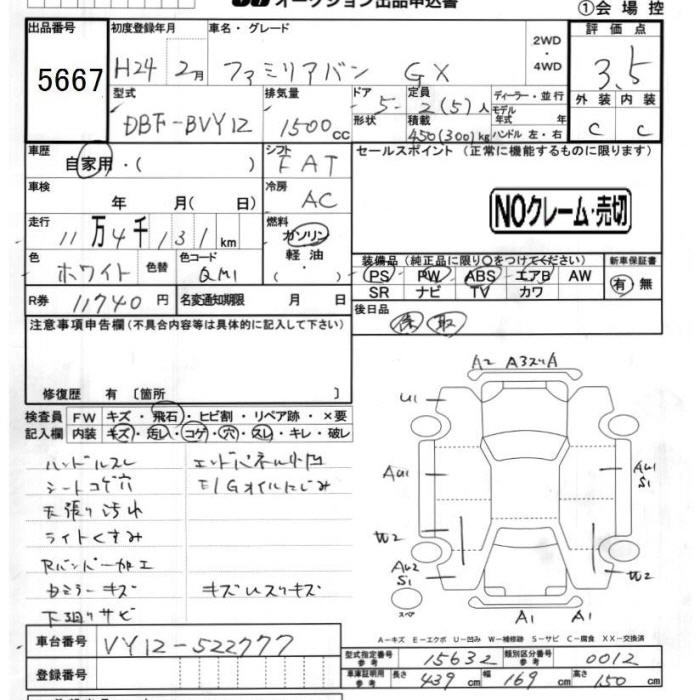 オークション出品申込書
①会場控
出品番号 5667
初度登録年月 H24 2月
車名・グレード ファミリアバン GX
2WD・4WD
評価点 3.5
外装 C 内装 C
型式 DBF-BVY12
排気量 1500cc
ドア 5
形状
定員 2(5)人
積載 450(300)kg
ディーラー・並行
モデル年式 年
ハンドル 左・右
車歴 自家用・( )
シフト FAT
車検 年 月( 日)
冷房 AC
走行 11万4千131km
燃料 ガソリン 軽油・( )
色 ホワイト 色替
色コード QM1
セールスポイント(正常に機能するものに限ります)
NOクレーム・売切
装備品(純正品に限り○をつけてください)
PS PW ABS エアB AW
SR ナビ TV カワ
新車保証書 有・無
R券 11740円
名変通知期限 月 日
後日品 保 取
注意事項申告欄(不具合内容等は具体的に記入して下さい)
修復歴 有〔箇所 〕
検査員記入欄
FW キズ・飛石・ヒビ割・リペア跡・×要
内装 キズ・汚レ・コゲ・穴・スレ・キレ・破レ
ハンドルスレ
シートコゲ穴
天張り汚れ
ライトくすみ
Rバンパー加工
ミラーキズ
下廻りサビ
エンドパネル小凹
E/Gオイルにじみ
キズUスリキズ
A2 A3スリA
U1
AU1
W2
AU2
S1
AU1
S1
W2
A1 A1
スペア
A−キズ E−エクボ U−凹み W−補修跡 S−サビ C−腐食 XX−交換済
車台番号 VY12-522777
登録番号
型式指定番号 参考 15632
類別区分番号 参考 0012
車庫証明用 参考 長さ 439cm 幅 169cm 高さ 150cm